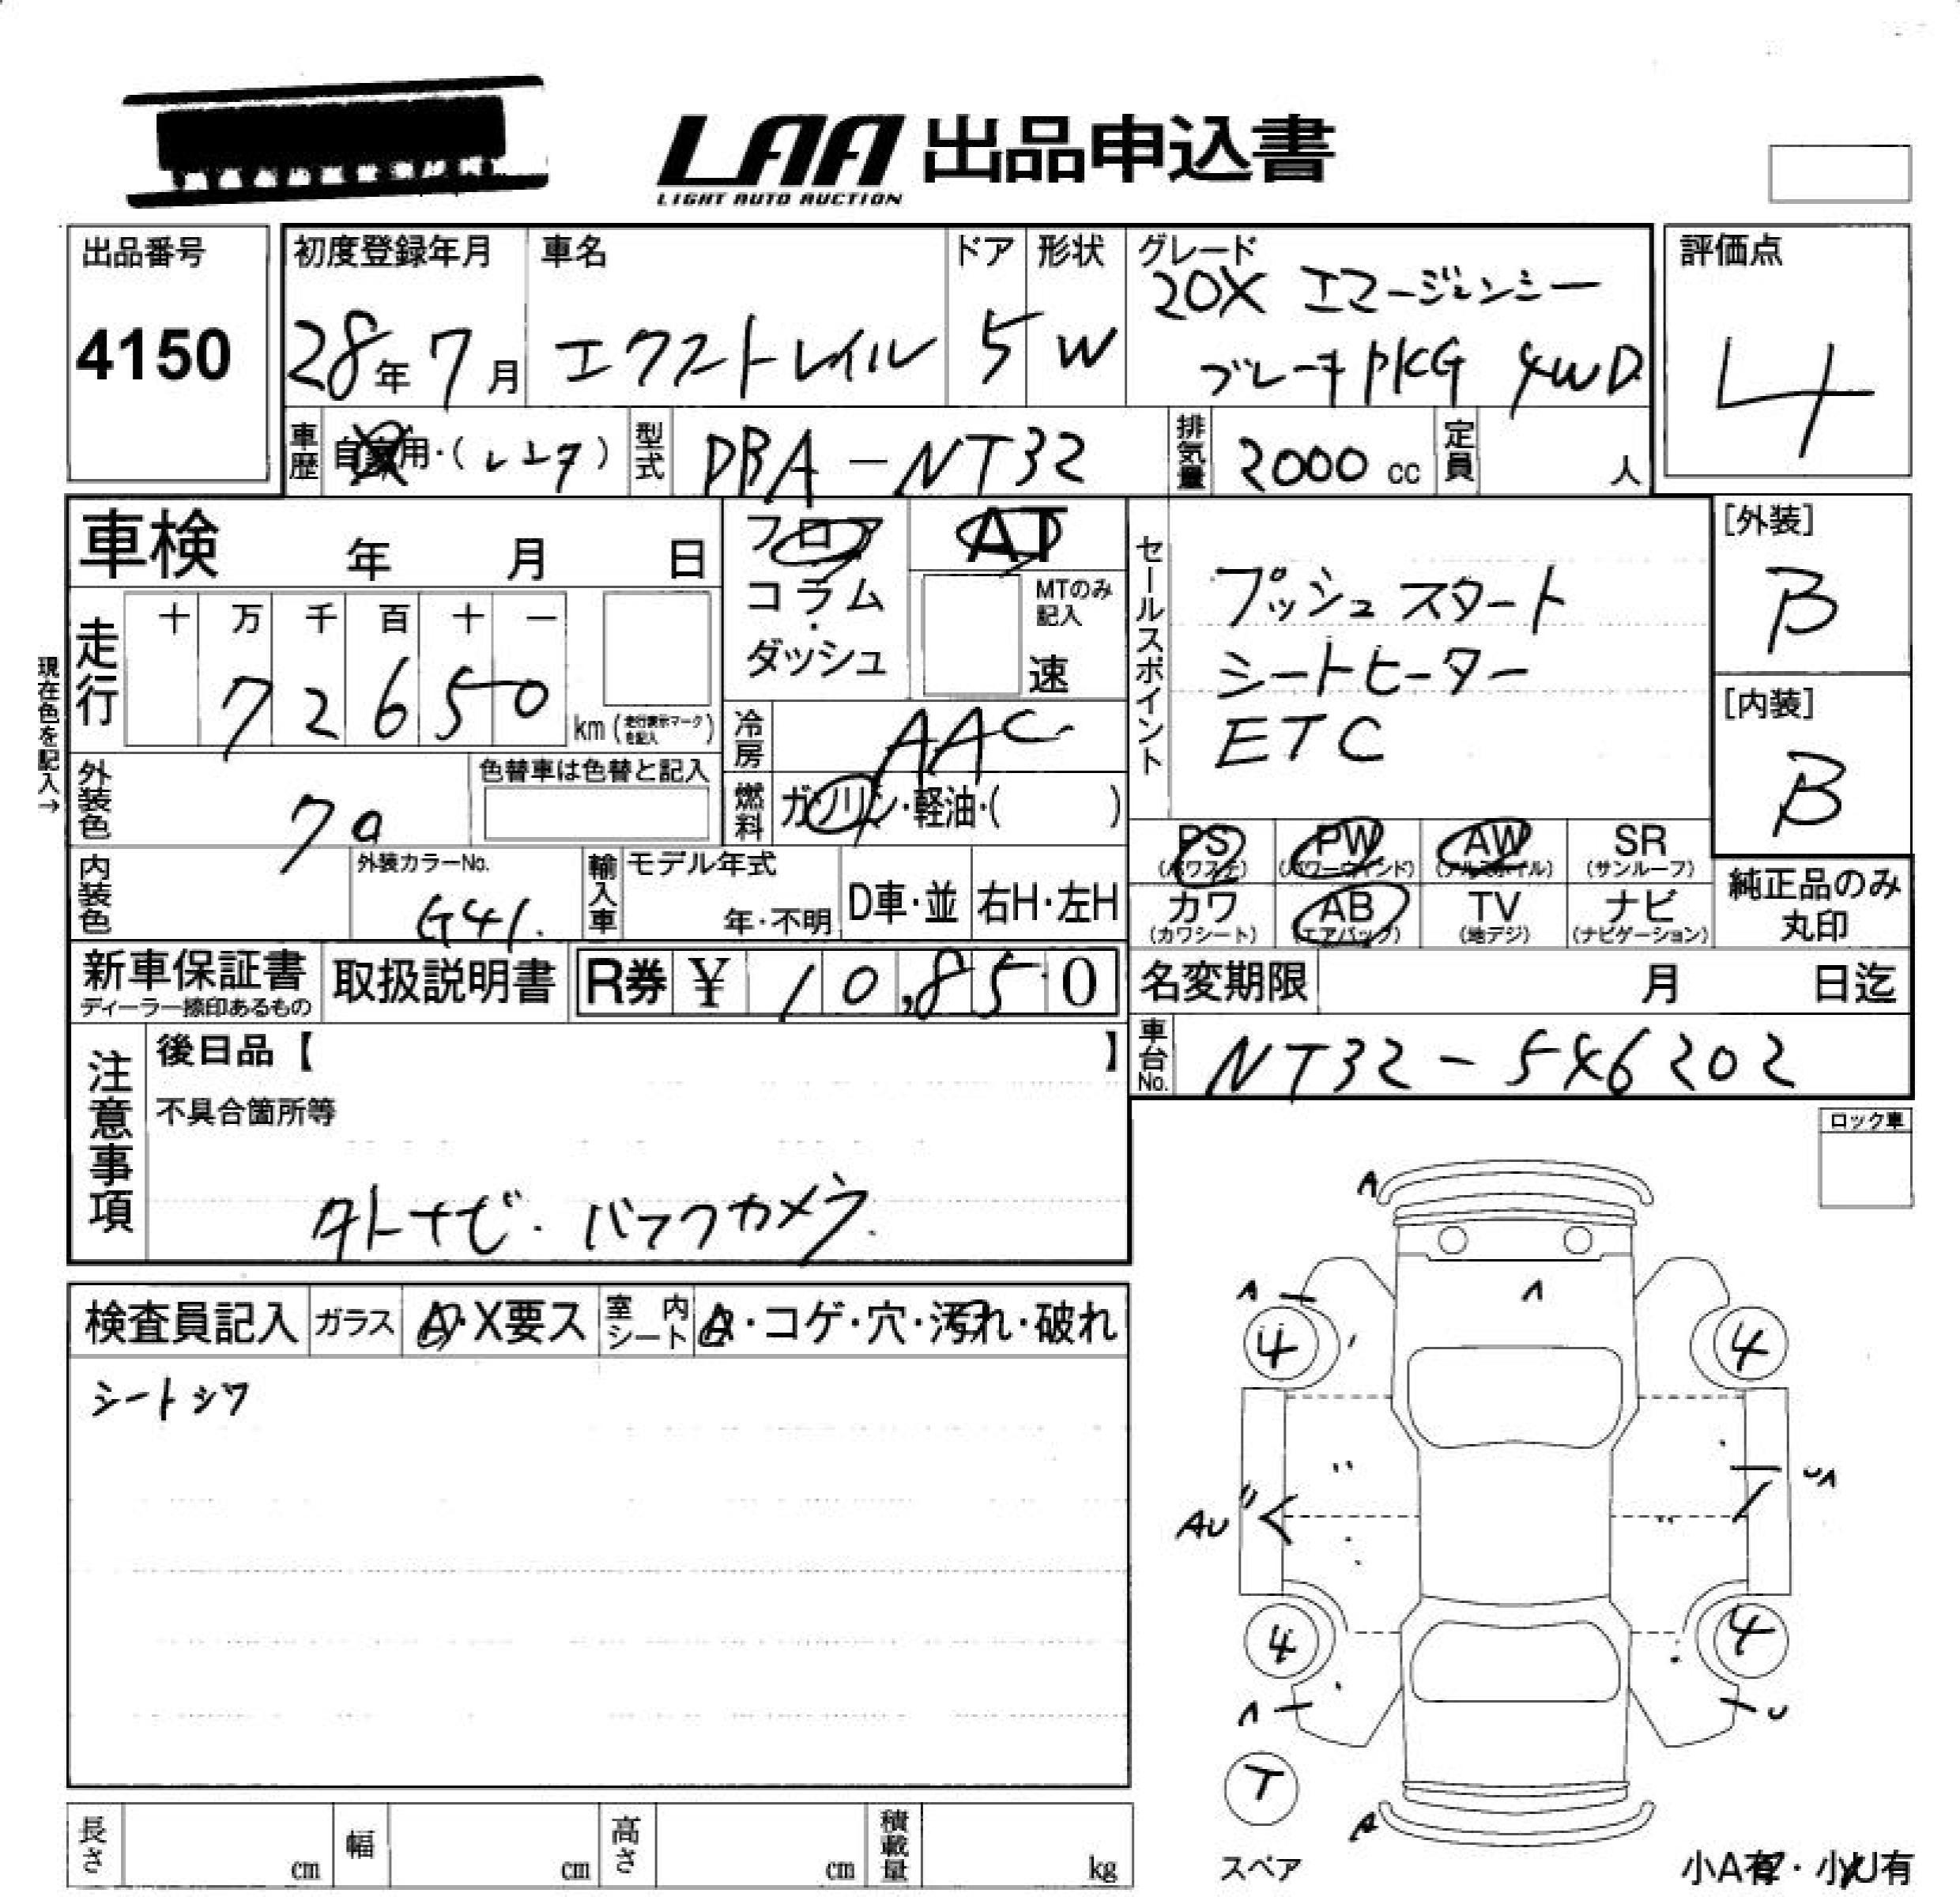 LAA 出品申込書
LIGHT AUTO AUCTION
出品番号
4150
初度登録年月
28年7月
車名
エクストレイル
ドア
5
形状
W
グレード
20X エマージェンシー
ブレーキPKG 4WD
評価点
4
車歴
自家用・(レンタ)
型式
DBA-NT32
排気量
2000 cc
定員
人
車検 年 月 日
走行
十 万 千 百 十 一
7 2 6 5 0
km (走行表示マークを記入)
現在色を記入→
外装色
クロ
色替車は色替と記入
内装色
外装カラーNo.
G41.
輸入車
モデル年式
年・不明
D車・並
右H・左H
フロア
コラム
・
ダッシュ
AT
MTのみ
記入
速
冷房
AAC
燃料
ガソリン・軽油・( )
セールスポイント
プッシュスタート
シートヒーター
ETC
[外装]
B
[内装]
B
PS
(パワステ)
PW
(パワーウインド)
AW
(アルミホイル)
SR
(サンルーフ)
カワ
(カワシート)
AB
(エアバッグ)
TV
(地デジ)
ナビ
(ナビゲーション)
純正品のみ
丸印
新車保証書
ディーラー捺印あるもの
取扱説明書
R券 ¥ 10,850
名変期限 月 日迄
車台No.
NT32-546202
注意事項
後日品【 】
不具合箇所等
外ナビ. バックカメラ.
ロック車
検査員記入
ガラス
A・X要ス
室内シート
A・コゲ・穴・汚れ・破れ
シートシワ
A
A
A
4
4
UA
AU
4
4
A
U
T
A
スペア
小A有・小U有
長さ cm
幅 cm
高さ cm
積載量 kg